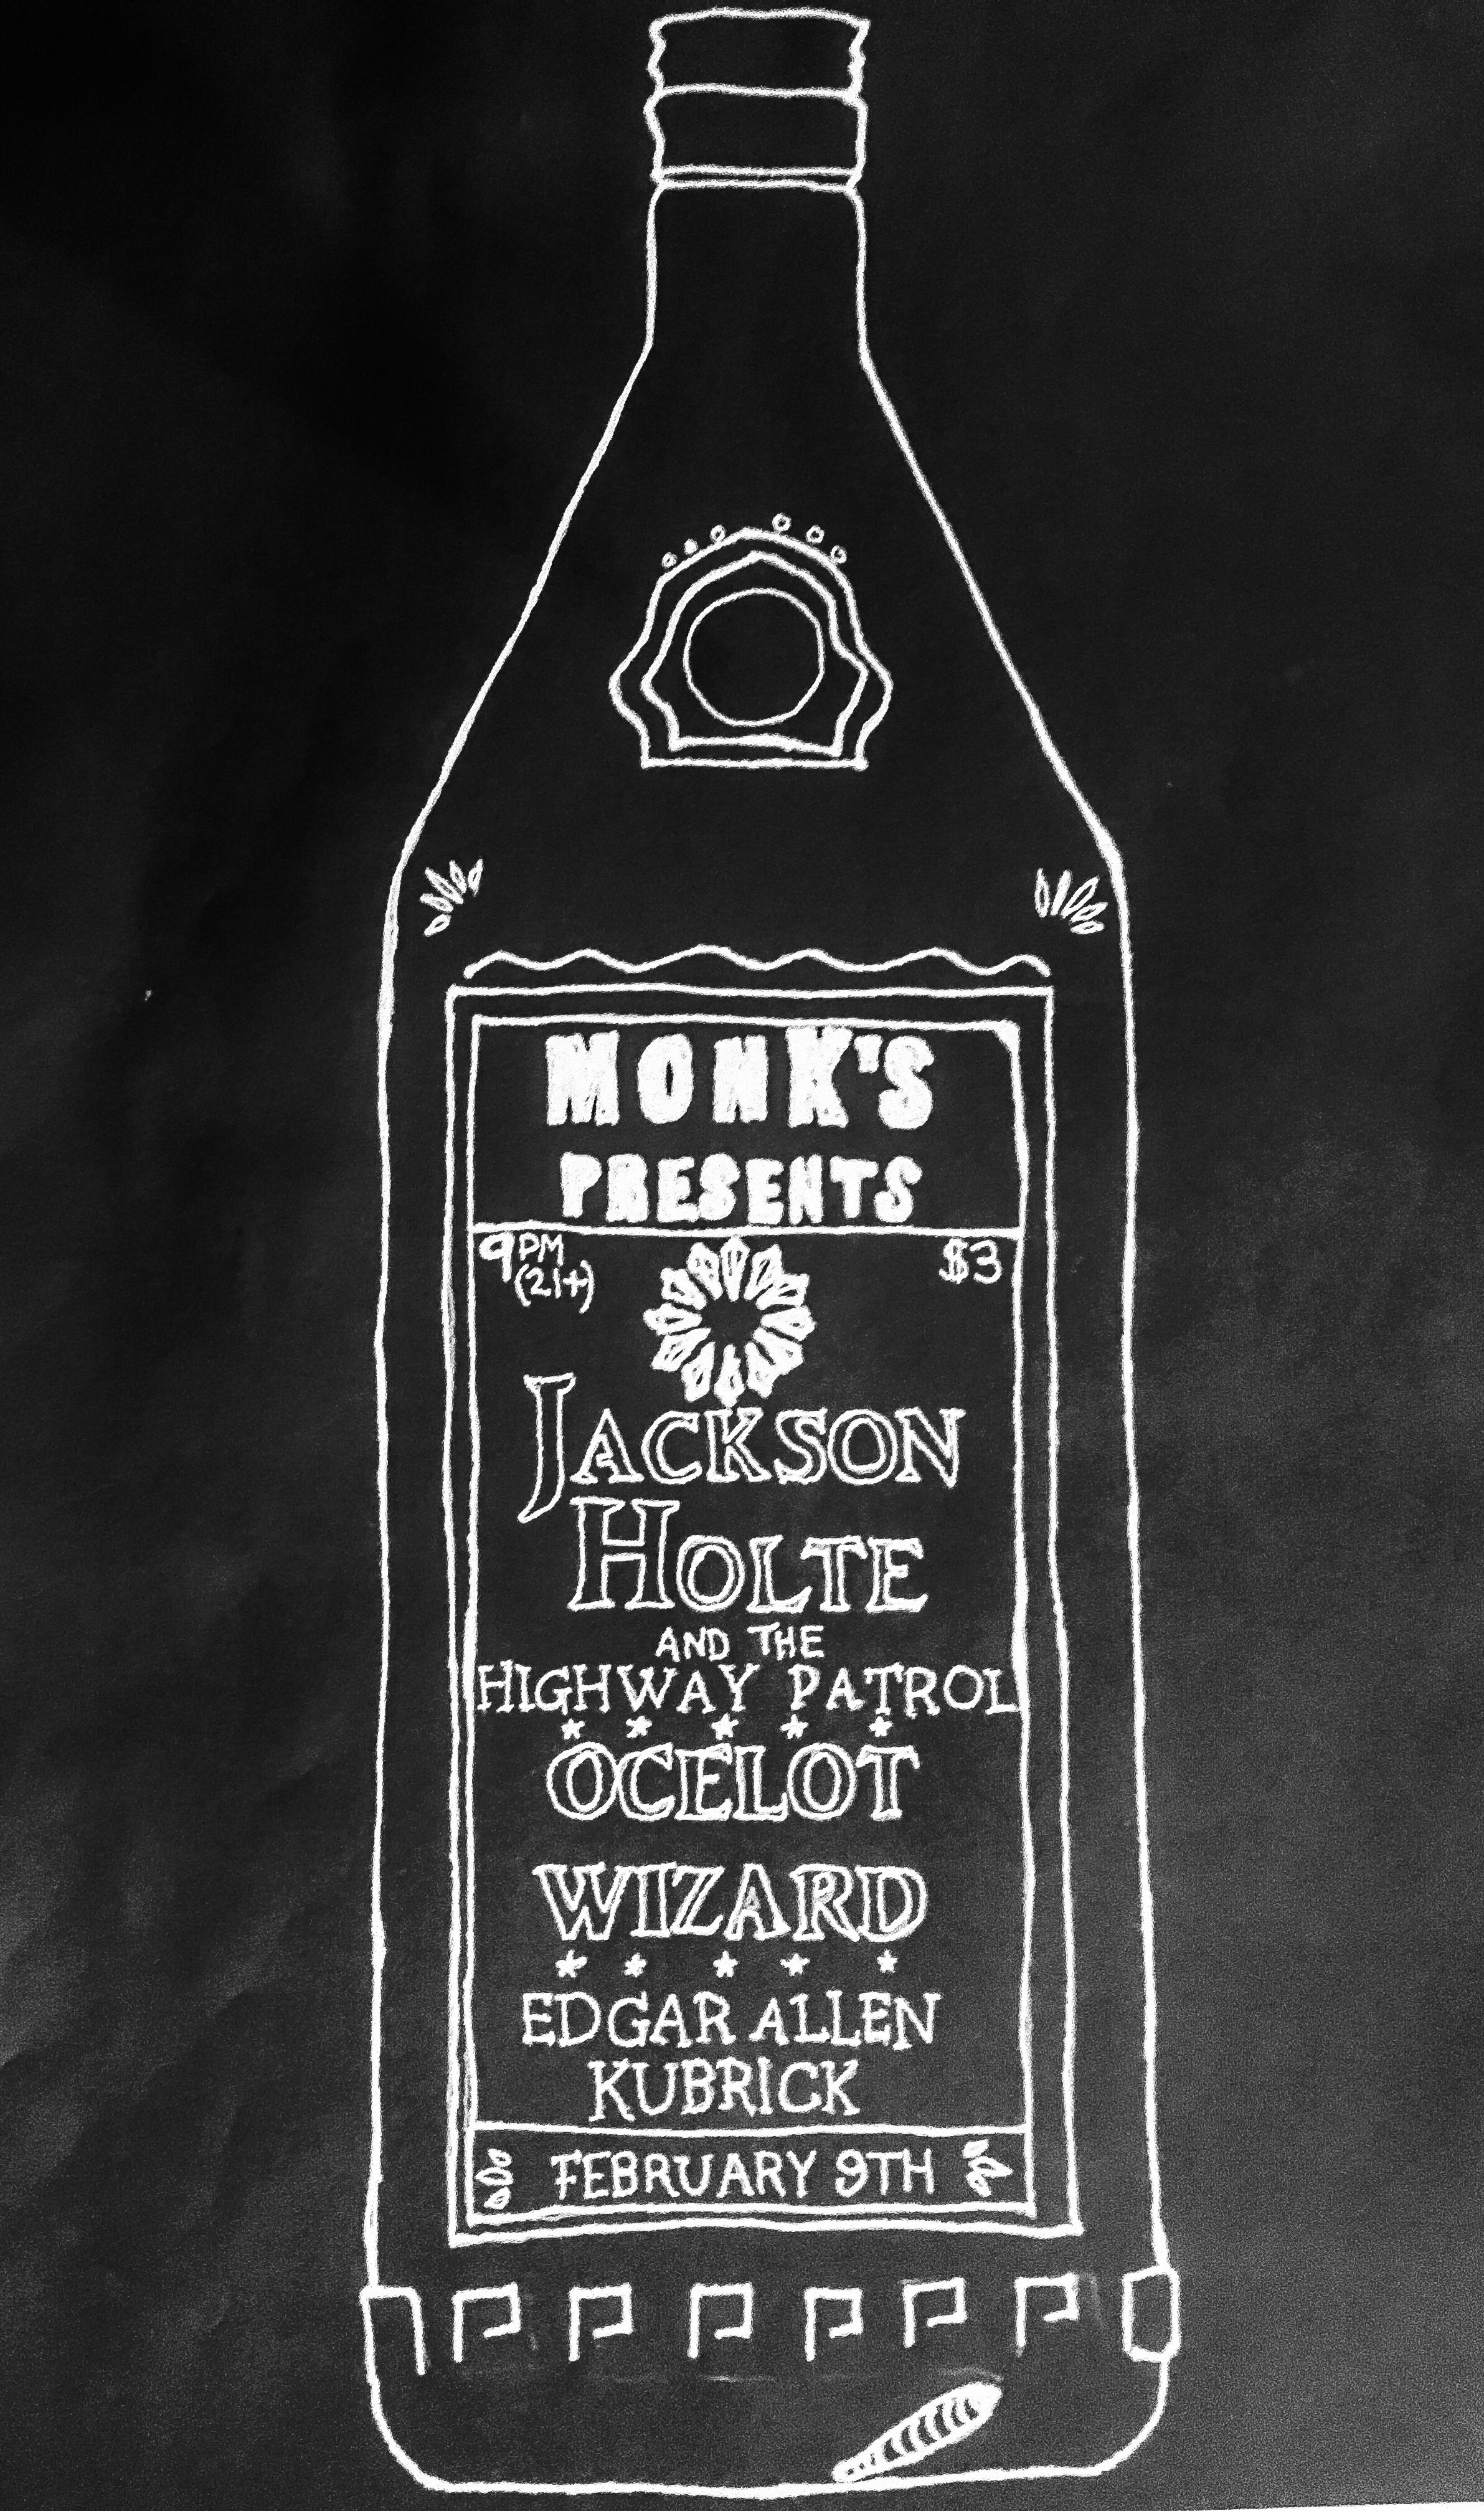 MONK'S
PRESENTS
9PM $3
(21+)
JACKSON
HOLTE
AND THE
HIGHWAY PATROL
* * * * *
OCELOT
WIZARD
* * * * *
EDGAR ALLEN
KUBRICK
FEBRUARY 9TH